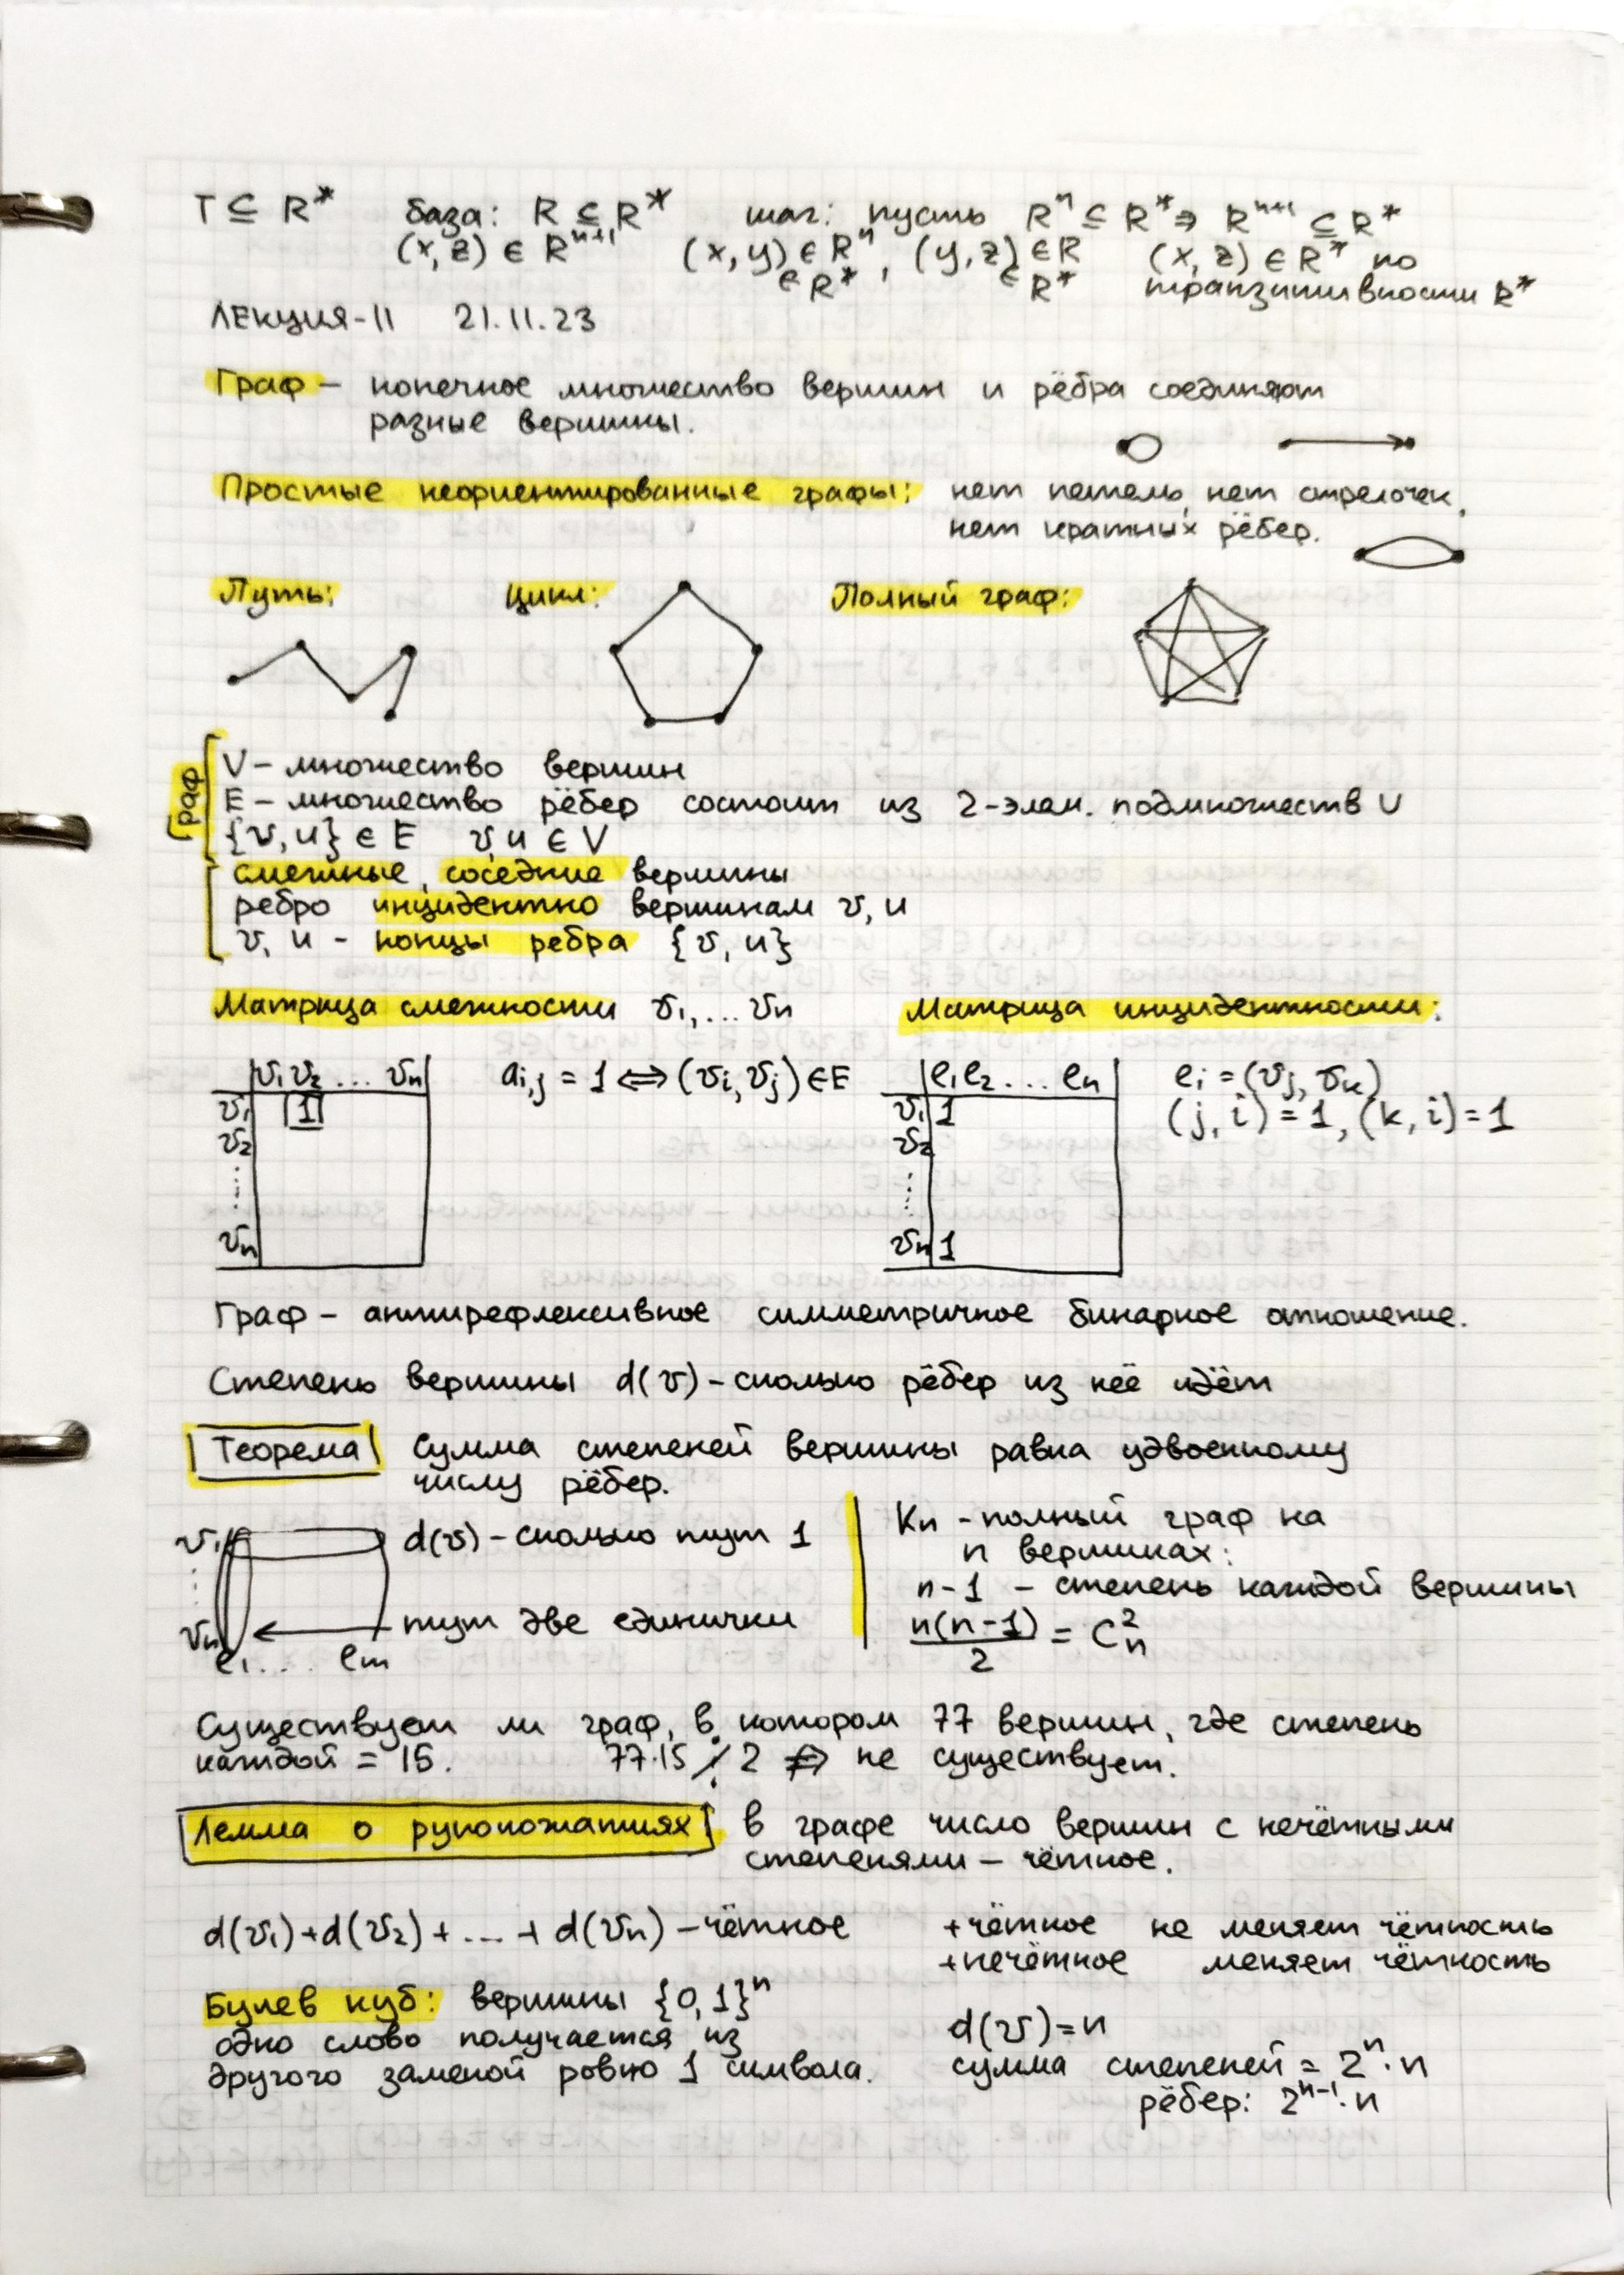 T ⊆ R* база: R ⊆ R* шаг: пусть Rⁿ ⊆ R* ⇒ Rⁿ⁺¹ ⊆ R*
(x, z) ∈ Rⁿ⁺¹ (x, y) ∈ Rⁿ, (y, z) ∈ R (x, z) ∈ R* по
∈ R* ∈ R* транзитивности R*
ЛЕКЦИЯ-11 21.11.23
Граф – конечное множество вершин и рёбра соединяют
разные вершины.
Простые неориентированные графы: нет петель, нет стрелочек,
нет кратных рёбер.
Путь: Цикл: Полный граф:
Граф
V – множество вершин
E – множество рёбер состоит из 2-элем. подмножеств V
{v, u} ∈ E v, u ∈ V
смежные, соседние вершины
ребро инцидентно вершинам v, u
v, u – концы ребра {v, u}
Матрица смежности v₁, ... vₙ Матрица инцидентности:
v₁ v₂ ... vₙ aᵢ,ⱼ = 1 ⇔ (vᵢ, vⱼ) ∈ E e₁ e₂ ... eₙ eᵢ = (vⱼ, vₖ)
v₁ 1 v₁ 1 (j, i) = 1, (k, i) = 1
v₂ v₂
vₙ vₙ 1
Граф – антирефлексивное симметричное бинарное отношение.
Степень вершины d(v) – сколько рёбер из неё идёт
Теорема Сумма степеней вершины равна удвоенному
числу рёбер.
v₁ d(v) – сколько тут 1
vₙ тут две единички
e₁ ... eₘ
Kₙ – полный граф на
n вершинах:
n-1 – степень каждой вершины
n(n-1)/2 = C²ₙ
Существует ли граф, в котором 77 вершин, где степень
каждой = 15. 77·15 ⋮̸ 2 ⇔ не существует.
Лемма о рукопожатиях в графе число вершин с нечётными
степенями – чётное.
d(v₁) + d(v₂) + ... + d(vₙ) – чётное +чётное не меняет чётность
+нечётное меняет чётность
Булев куб: вершины {0, 1}ⁿ
одно слово получается из
другого заменой ровно 1 символа.
d(v) = n
сумма степеней = 2ⁿ · n
рёбер: 2ⁿ⁻¹ · n